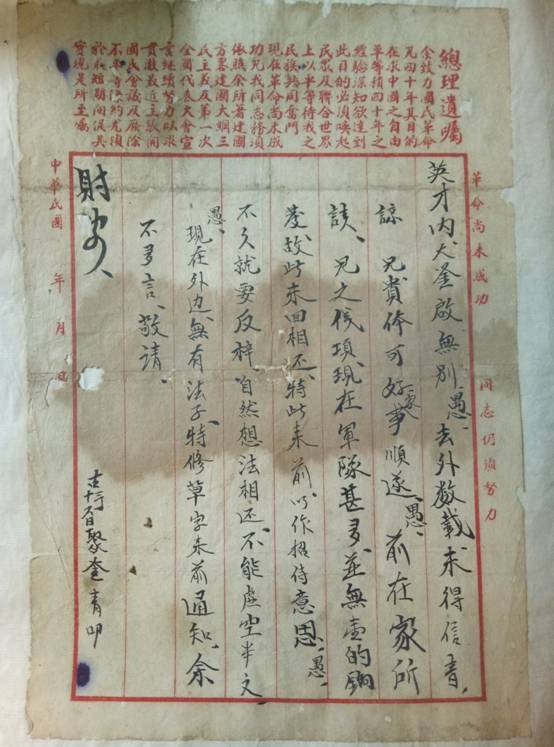 總理遺囑
余致力國民革命
凡四十年其目的
在求中國之自由
平等積四十年之
經驗深知欲達到
此目的必須喚起
民眾及聯合世界
上以平等待我之
民族共同奮鬥
現在革命尚未成
功凡我同志務須
依照余所著建國
方畧建國大綱三
民主義及第一次
全國代表大會宣
言繼續努力以求
貫徹最近主張開
國民會議及廢除
不平等條約尤須
於最短期間促其
實現是所至囑
革命尚未成功 同志仍須努力
英才内大釜啟無別愚去外数載未得信音
諒兄貴体可好家事順遂愚前在家所
該兄之賬項現在軍隊甚多並無壹的餉
發故此未回相还特此来前以作招待意思愚
不久就要反梓自然想法相还不能虚空半文
愚現在外边無有法子特修草字来前通知余
不多言敬請
財安
聚奎青叩
中華民國 年 月 日